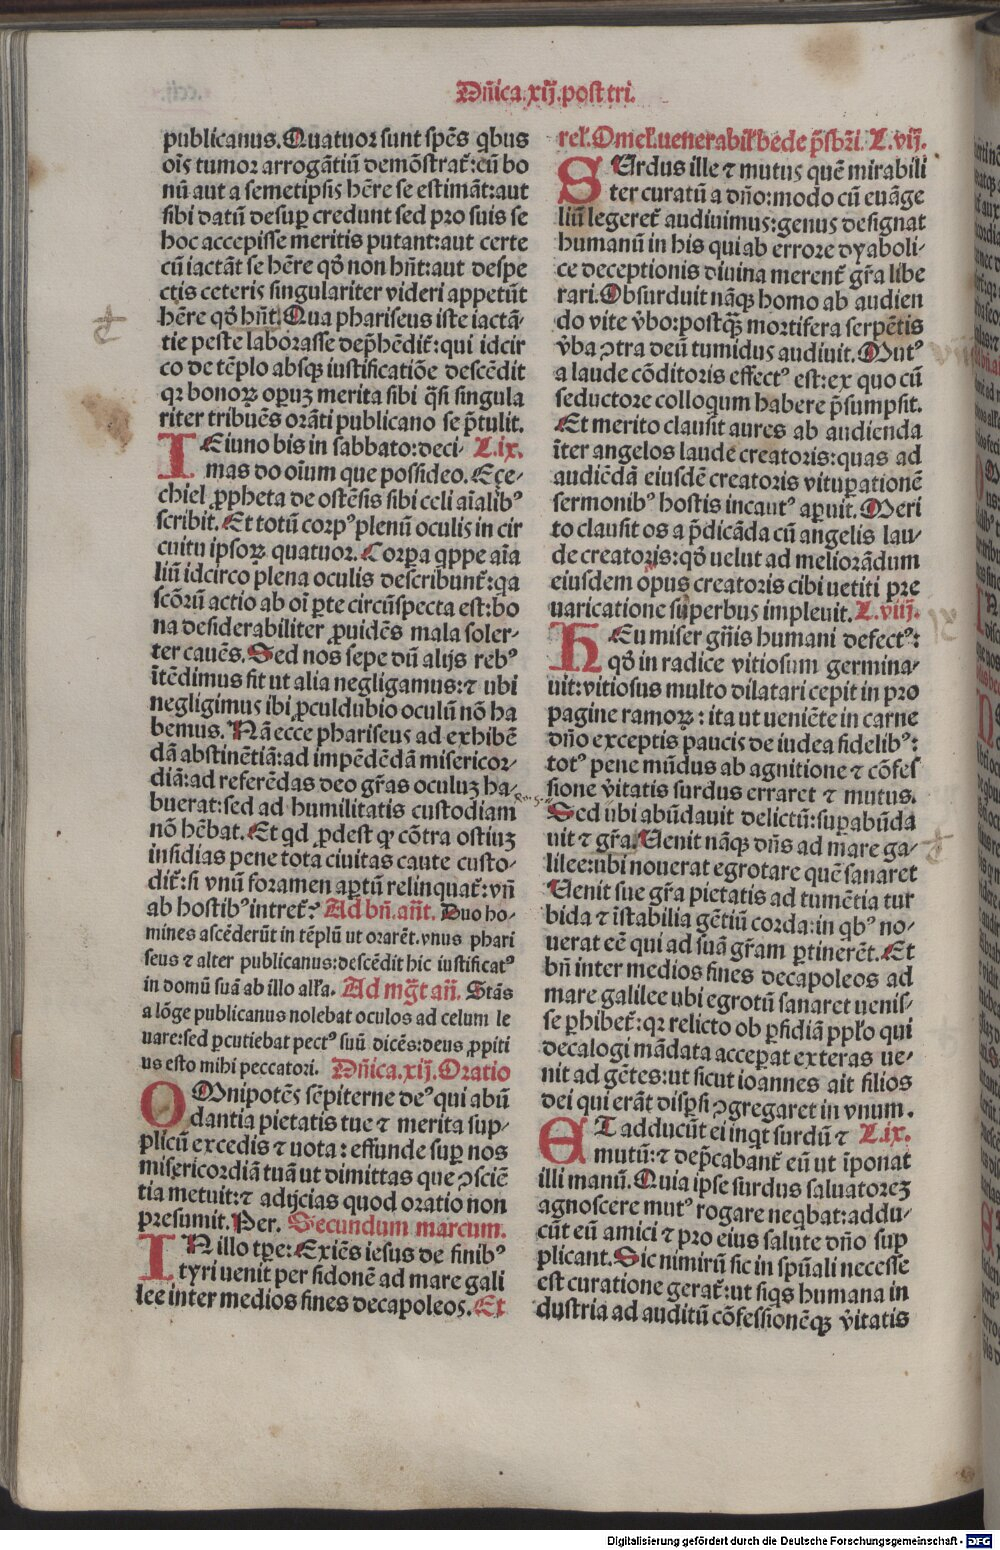 Dñica.xij.post tri.
publicanus.Quatuor sunt spēs qͥbus
oīs tumor arrogātiū demōstratᷣ:cū bo
nū aut a semetipsis hēre se estimāt:aut
sibi datū desuꝑ credunt sed pro suis se
hoc accepisse meritis putant:aut certe
cū iactāt se hēre qđ non hn̄t:aut despe
ctis ceteris singulariter videri appetūt
hēre qđ hn̄t.Qua phariseus iste iactā-
tie peste laborasse dep̄hēditᷣ:qui idcir
co de tēplo absqꝫ iustificatiōe descēdit
qꝛ bonoꝝ opeꝝ merita sibi q̄si singula
riter tribuēs orāti publicano se p̄tulit.
IEiuno bis in sabbato:deci- L.ix.
mas do oīum que possideo.Eçe-
chiel ꝓpheta de ostēsis sibi celi aīalibꝰ
scribit.Et totū corpꝰ plenū oculis in cir
cuitu ipsoꝝ quatuor.Corꝑa qͥppe aīa
liū idcirco plena oculis describuntᷣ:qa
scōrū actio ab oī ꝑte circūspecta est:bo
na desiderabiliter ꝓuidēs mala soler-
ter cauēs.Sed nos sepe dū alijs rebꝰ
ītēdimus fit ut alia negligamus:⁊ ubi
negligimus ibi ꝓculdubio oculū nō ha
bemus.Nā ecce phariseus ad exhibē
dā abstinētiā:ad impēdēdā misericor-
diā:ad referēdas deo gr̄as oculuꝫ ha-
buerat:sed ad humilitatis custodiam
nō hēbat.Et qͥd ꝓdest qꝫ cōtra ostiuꝫ
insidias pene tota ciuitas caute custo-
ditᷣ:si vnū foramen aꝑtū relinquatᷣ:vn̄
ab hostibꝰ intretᷣ? Ad bn̄.an̄t. Duo ho-
mines ascēderūt in tēplū ut orarēt.vnus phari
seus ⁊ alter publicanus:descēdit hic iustificatꝰ
in domū suā ab illo alīa. Ad mg̅t an̄. Stās
a lōge publicanus nolebat oculos ad celum le
uare:sed ꝑcutiebat pectꝰ suū dicēs:deus ꝓpiti
us esto mihi peccatori. Dñica.xij.Oratio
OMnipotēs sēpiterne deꝰ qui abū
dantia pietatis tue ⁊ merita sup-
plicū excedis ⁊ uota:effunde suꝑ nos
misericordiā tuā ut dimittas que ꝯsciē
tia metuit:⁊ adijcias quod oratio non
presumit.Per. Secundum marcum.
IN illo tp̄e:Exiēs iesus de finibꝰ
tyri uenit per sidonē ad mare gali
lee inter medios fines decapoleos.Et
rel.Omel.uenerabil bede p̄sb̄ri. L.vij.
SUrdus ille ⁊ mutus quē mirabili
ter curatū a dño:modo cū euāge
liū legeretᷣ audiuimus:genus designat
humanū in his qui ab errore dyaboli-
ce deceptionis diuina merentᷣ gr̄a libe
rari.Obsurduit nāqꝫ homo ab audien
do vite v̄bo:postqꝫ mortifera serpētis
v̄ba ꝯtra deū tumidus audiuit.Mutꝰ
a laude cōditoris effectꝰ est:ex quo cū
seductore colloquum habere p̄sumpsit.
Et merito clausit aures ab audienda
īter angelos laude creatoris:quas ad
audiēdā eiusdē creatoris vituꝑationē
sermonibꝰ hostis incautꝰ aꝑuit.Meri
to clausit os a p̄dicāda cū angelis lau-
de creatoris:qđ uelut ad meliorādum
eiusdem opus creatoris cibi uetiti pre
uaricatione superbus impleuit.L.viij.
HEu miser gn̄is humani defectꝰ:
qđ in radice vitiosum germina-
uit:vitiosus multo dilatari cepit in pro
pagine ramoꝝ:ita ut ueniēte in carne
dño exceptis paucis de iudea fidelibꝰ:
totꝰ pene mūdus ab agnitione ⁊ cōfes
sione v̄itatis surdus erraret ⁊ mutus.
Sed ubi abūdauit delictū:suꝑabūda
uit ⁊ gr̄a.Uenit nāqꝫ dn̄s ad mare ga-
lilee:ubi nouerat egrotare quē sanaret
Uenit sue gr̄a pietatis ad tumētia tur
bida ⁊ īstabilia gētiū corda:in qͥbꝰ no-
uerat eē qui ad suā gr̄am ꝑtinerēt.Et
bn̄ inter medios fines decapoleos ad
mare galilee ubi egrotū sanaret uenis-
se ꝑhibetᷣ:qꝛ relicto ob ꝑfidiā pp̄lo qui
decalogi mādata acceꝑat exteras ue-
nit ad gētes:ut sicut ioannes ait filios
dei qui erāt disꝑsi ꝯgregaret in vnum.
ET adducūt ei inqͥt surdū ⁊ L.ix.
mutū:⁊ dep̄cabantᷣ eū ut īponat
illi manū.Quia ipse surdus saluatoreꝫ
agnoscere mutꝰ rogare neqͥbat:addu-
cūt eū amici ⁊ pro eius salute dño sup
plicant.Sic nimirū sic in spūali necesse
est curatione geratᷣ:ut siqͥs humana in
dustria ad auditū cōfessionēqꝫ v̄itatis
Digitalisierung gefördert durch die Deutsche Forschungsgemeinschaft - DFG